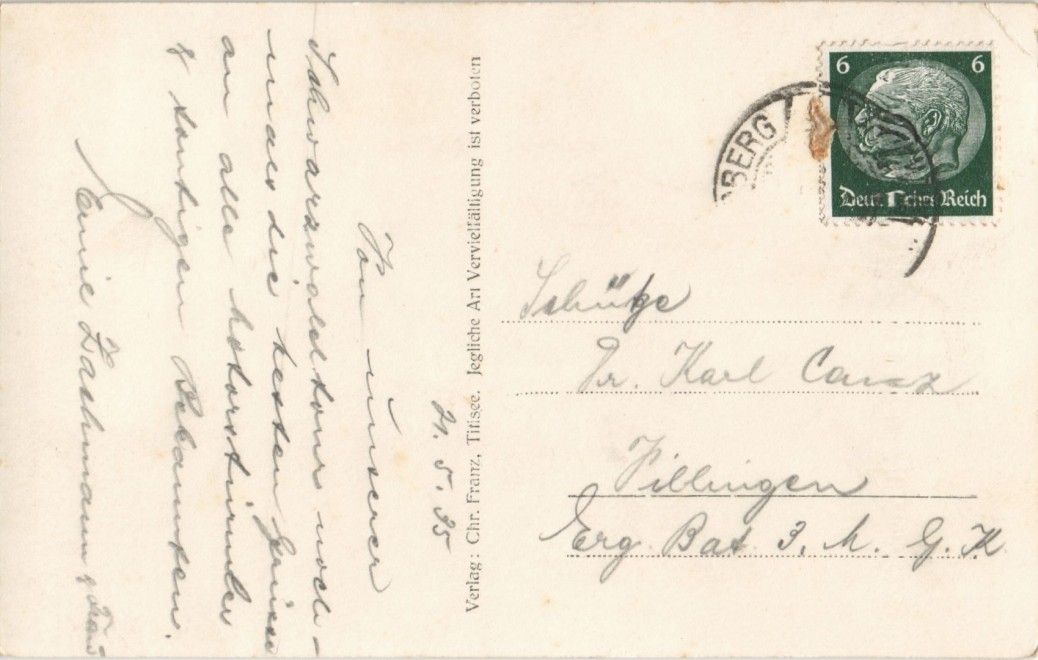 21. 5. 35
Von unserer
Schwarzwaldtour noch-
mals die besten Grüsse
an alle Motorstürmler
& sonstigen Bekannten.
Emil Bachmann & Frau
Verlag: Chr. Franz, Titisee. Jegliche Art Vervielfältigung ist verboten
6 6
Deutsches Reich
BERG
Schütze
Dr. Karl
Villingen
Erg. Bat. 3. M. G. K.